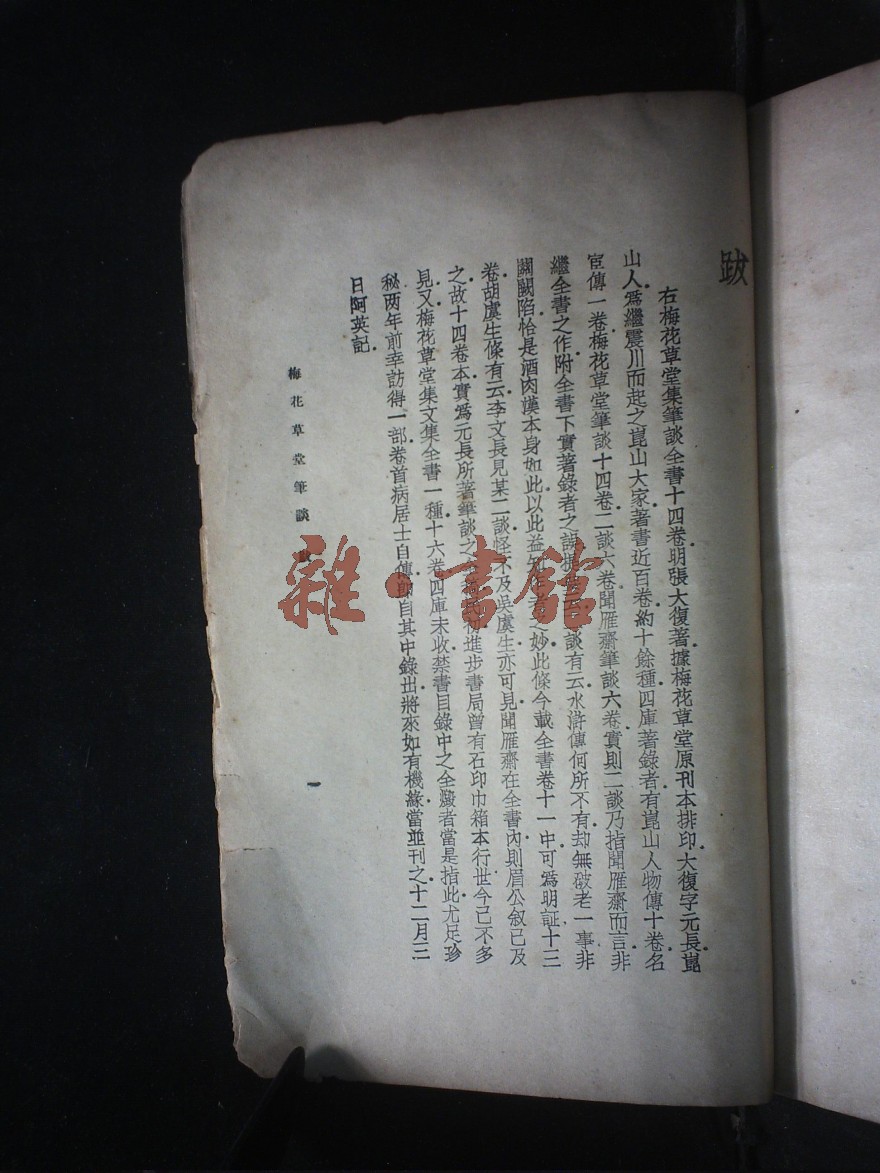 跋
右梅花草堂集筆談全書十四卷明張大復著據梅花草堂原刊本排印大復字元長崑
山人爲繼震川而起之崑山大家著書近百卷約十餘種四庫著錄者有崑山人物傳十卷名
宦傳一卷梅花草堂筆談十四卷二談六卷聞雁齋筆談六卷實則二談乃指聞雁齋而言非
繼全書之作附全書下實著錄者之誤談有云水滸傳何所不有却無破老一事非
關闕陷恰是酒肉漢本身如此以此益知作者之妙此條今載全書卷十一中可爲明証十三
卷胡虞生條有云李文長見某二談怪不及吳虞生亦可見聞雁齋在全書內則眉公叙已及
之故十四卷本實爲元長所著筆談之初進步書局曾有石印巾箱本行世今已不多
見又梅花草堂集文集全書一種十六卷四庫未收禁書目錄中之全燬者當是指此尤足珍
秘两年前幸訪得一部卷首病居士自傳卽自其中錄出將來如有機緣當並刊之十二月三
日阿英記
梅花草堂筆談
一
雜·書館